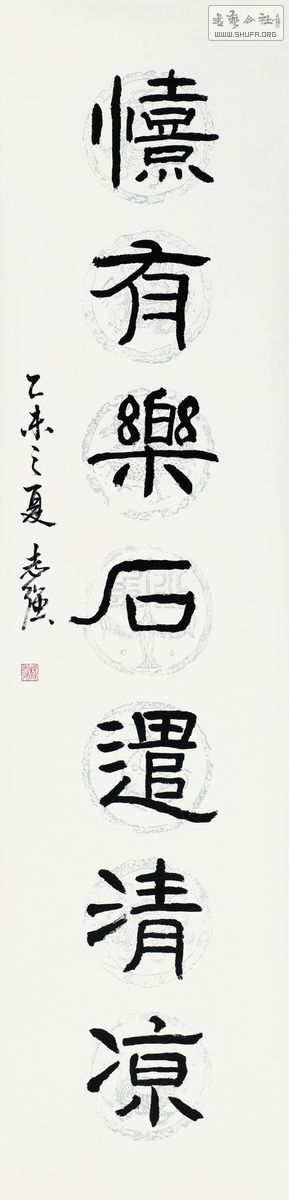 有樂石遣清凉
乙未之夏 志強
書藝公社
WWW.SHUFA.ORG